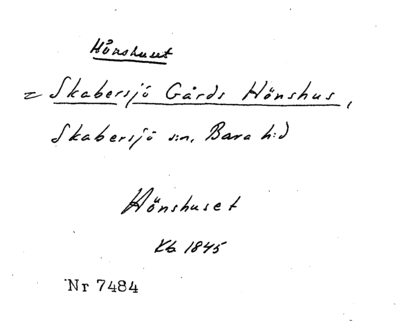 Hönshuset
= Skabersjö Gårds Hönshus,
Skabersjö s:n, Bara h:d
Hönshuset
Kb 1845
Nr 7484